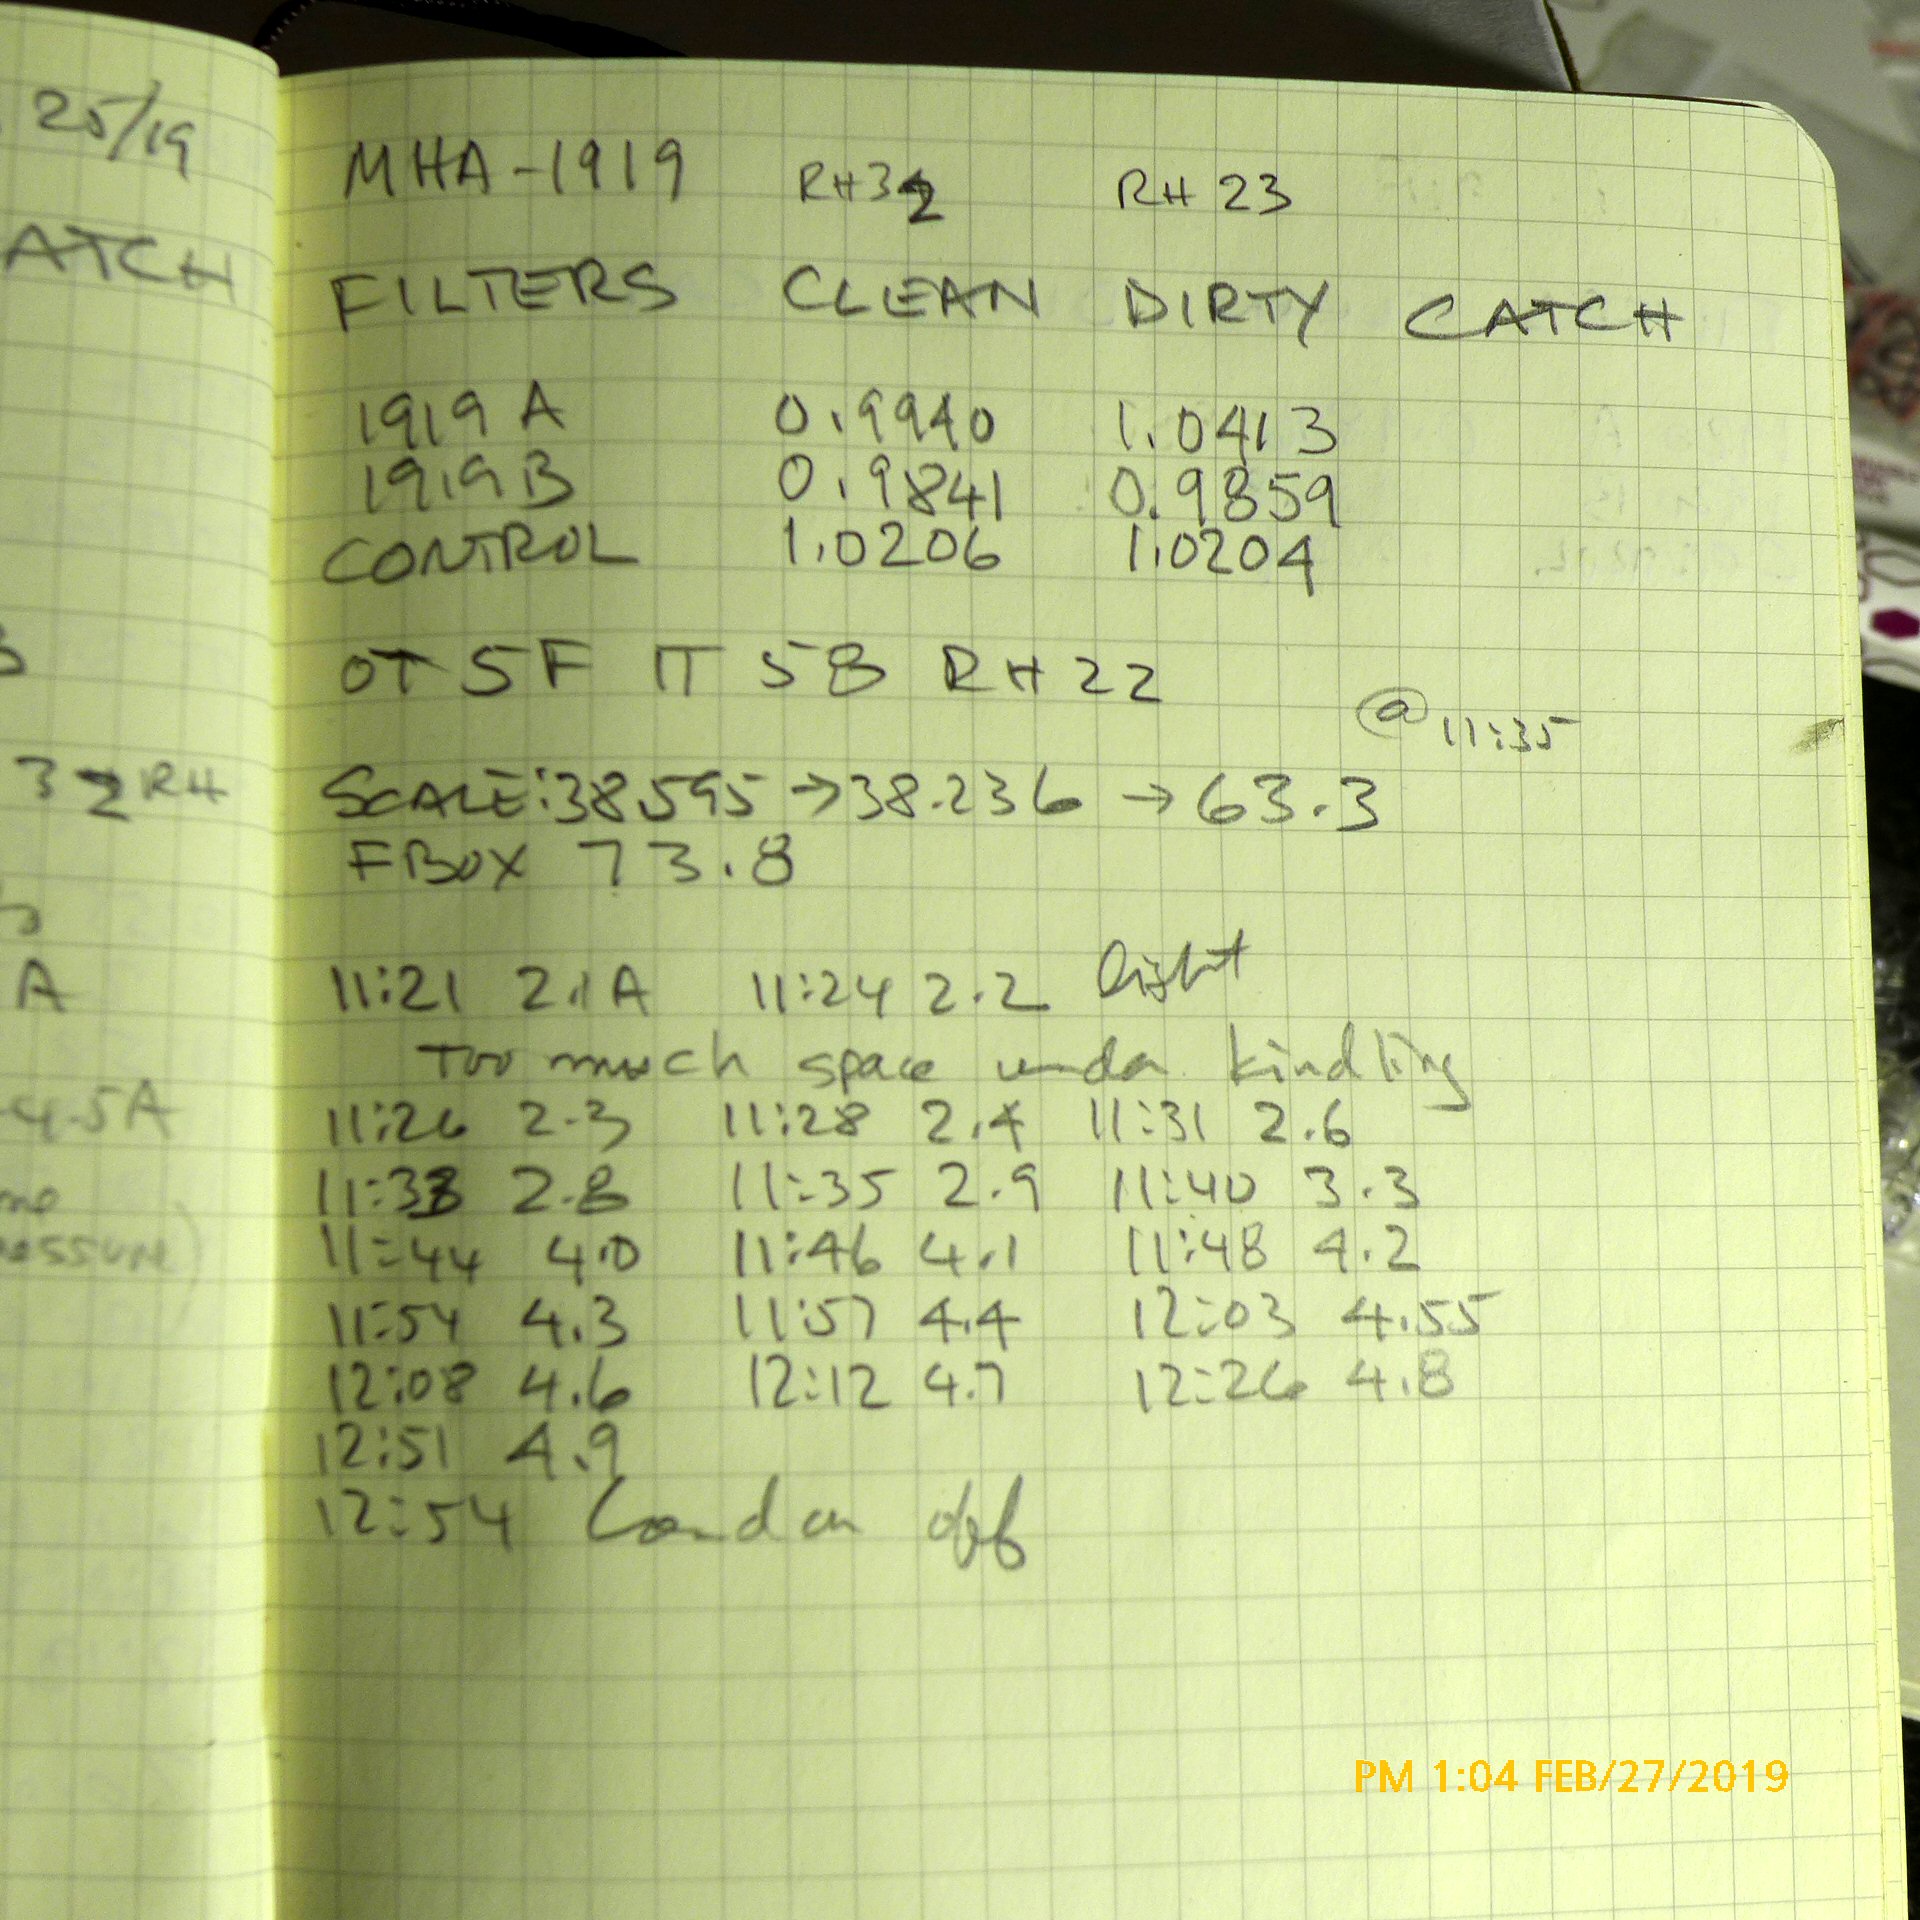 25/19
ATCH
32 RH
A
4.5A
MHA-1919 RH32 RH 23
FILTERS CLEAN DIRTY CATCH
1919 A 0.9940 1.0413
1919 B 0.9841 0.9859
CONTROL 1.0206 1.0204
OT 5F IT 58 RH 22
@ 11:35
SCALE: 38.595 → 38.236 → 63.3
FBOX 73.8
11:21 2.1A 11:24 2.2 light
TOO much space under kindling
11:26 2.3 11:28 2.4 11:31 2.6
11:33 2.8 11:35 2.9 11:40 3.3
11:44 4.0 11:46 4.1 11:48 4.2
11:54 4.3 11:57 4.4 12:03 4.55
12:08 4.6 12:12 4.7 12:26 4.8
12:51 4.9
12:54 off
PM 1:04 FEB/27/2019